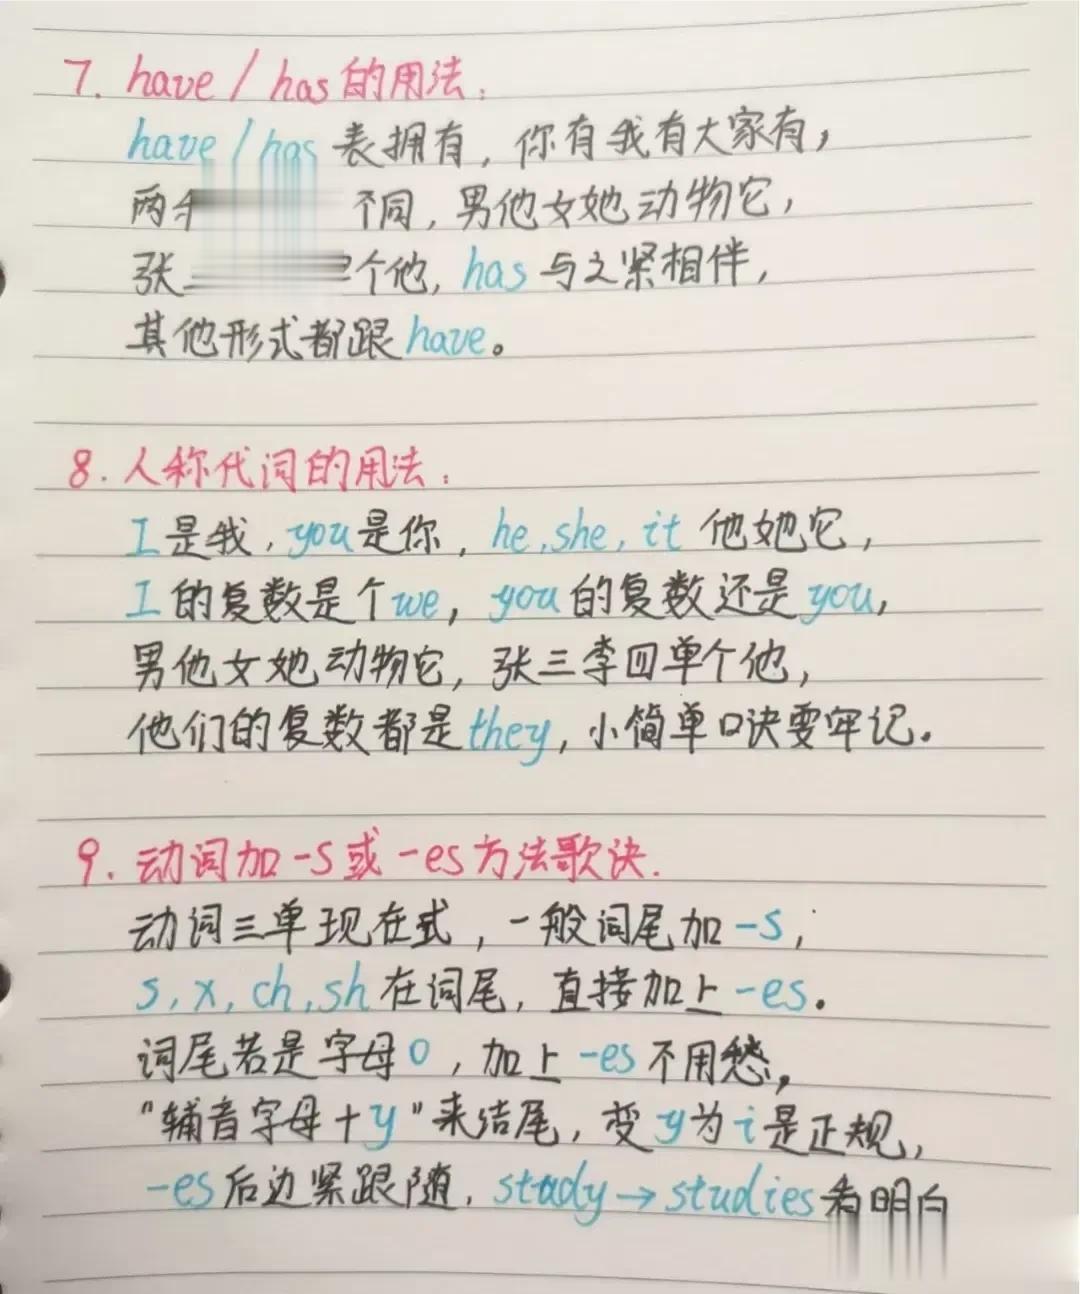 7. have / has 的用法:
have / has 表拥有, 你有我有大家有,
两 不同, 男他女她动物它,
张 个他, has 与之紧相伴,
其他形式都跟 have。
8. 人称代词的用法:
I 是我, you 是你, he, she, it 他她它,
I 的复数是个 we, you 的复数还是 you,
男他女她动物它, 张三李四单个他,
他们的复数都是 they, 小简单口诀要牢记.
9. 动词加 -s 或 -es 方法歌诀.
动词三单现在式, 一般词尾加 -s;
s, x, ch, sh 在词尾, 直接加上 -es.
词尾若是字母 o, 加上 -es 不用愁,
"辅音字母 + y" 来结尾, 变 y 为 i 是正规,
-es 后边紧跟随, study → studies 看明白